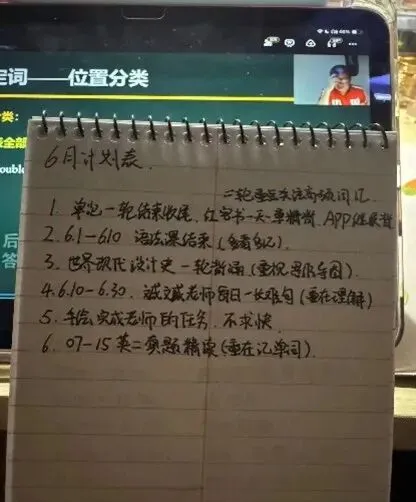 定词——位置分类
类:
或全部
ouble
后
答
6月计划表.
二轮重点关注高频词汇
1. 单词一轮结束收尾, 红宝书一天一单精背, APP继续背
2. 6.1-6.10 语法课结束(多看多记)
3. 世界现代设计史一轮背诵(重视思维导图)
4. 6.10-6.30. 诚威老师每日一长难句(重在理解)
5. 手绘完成老师的任务. 不求快.
6. 07-15英二真题精读(重在记单词)